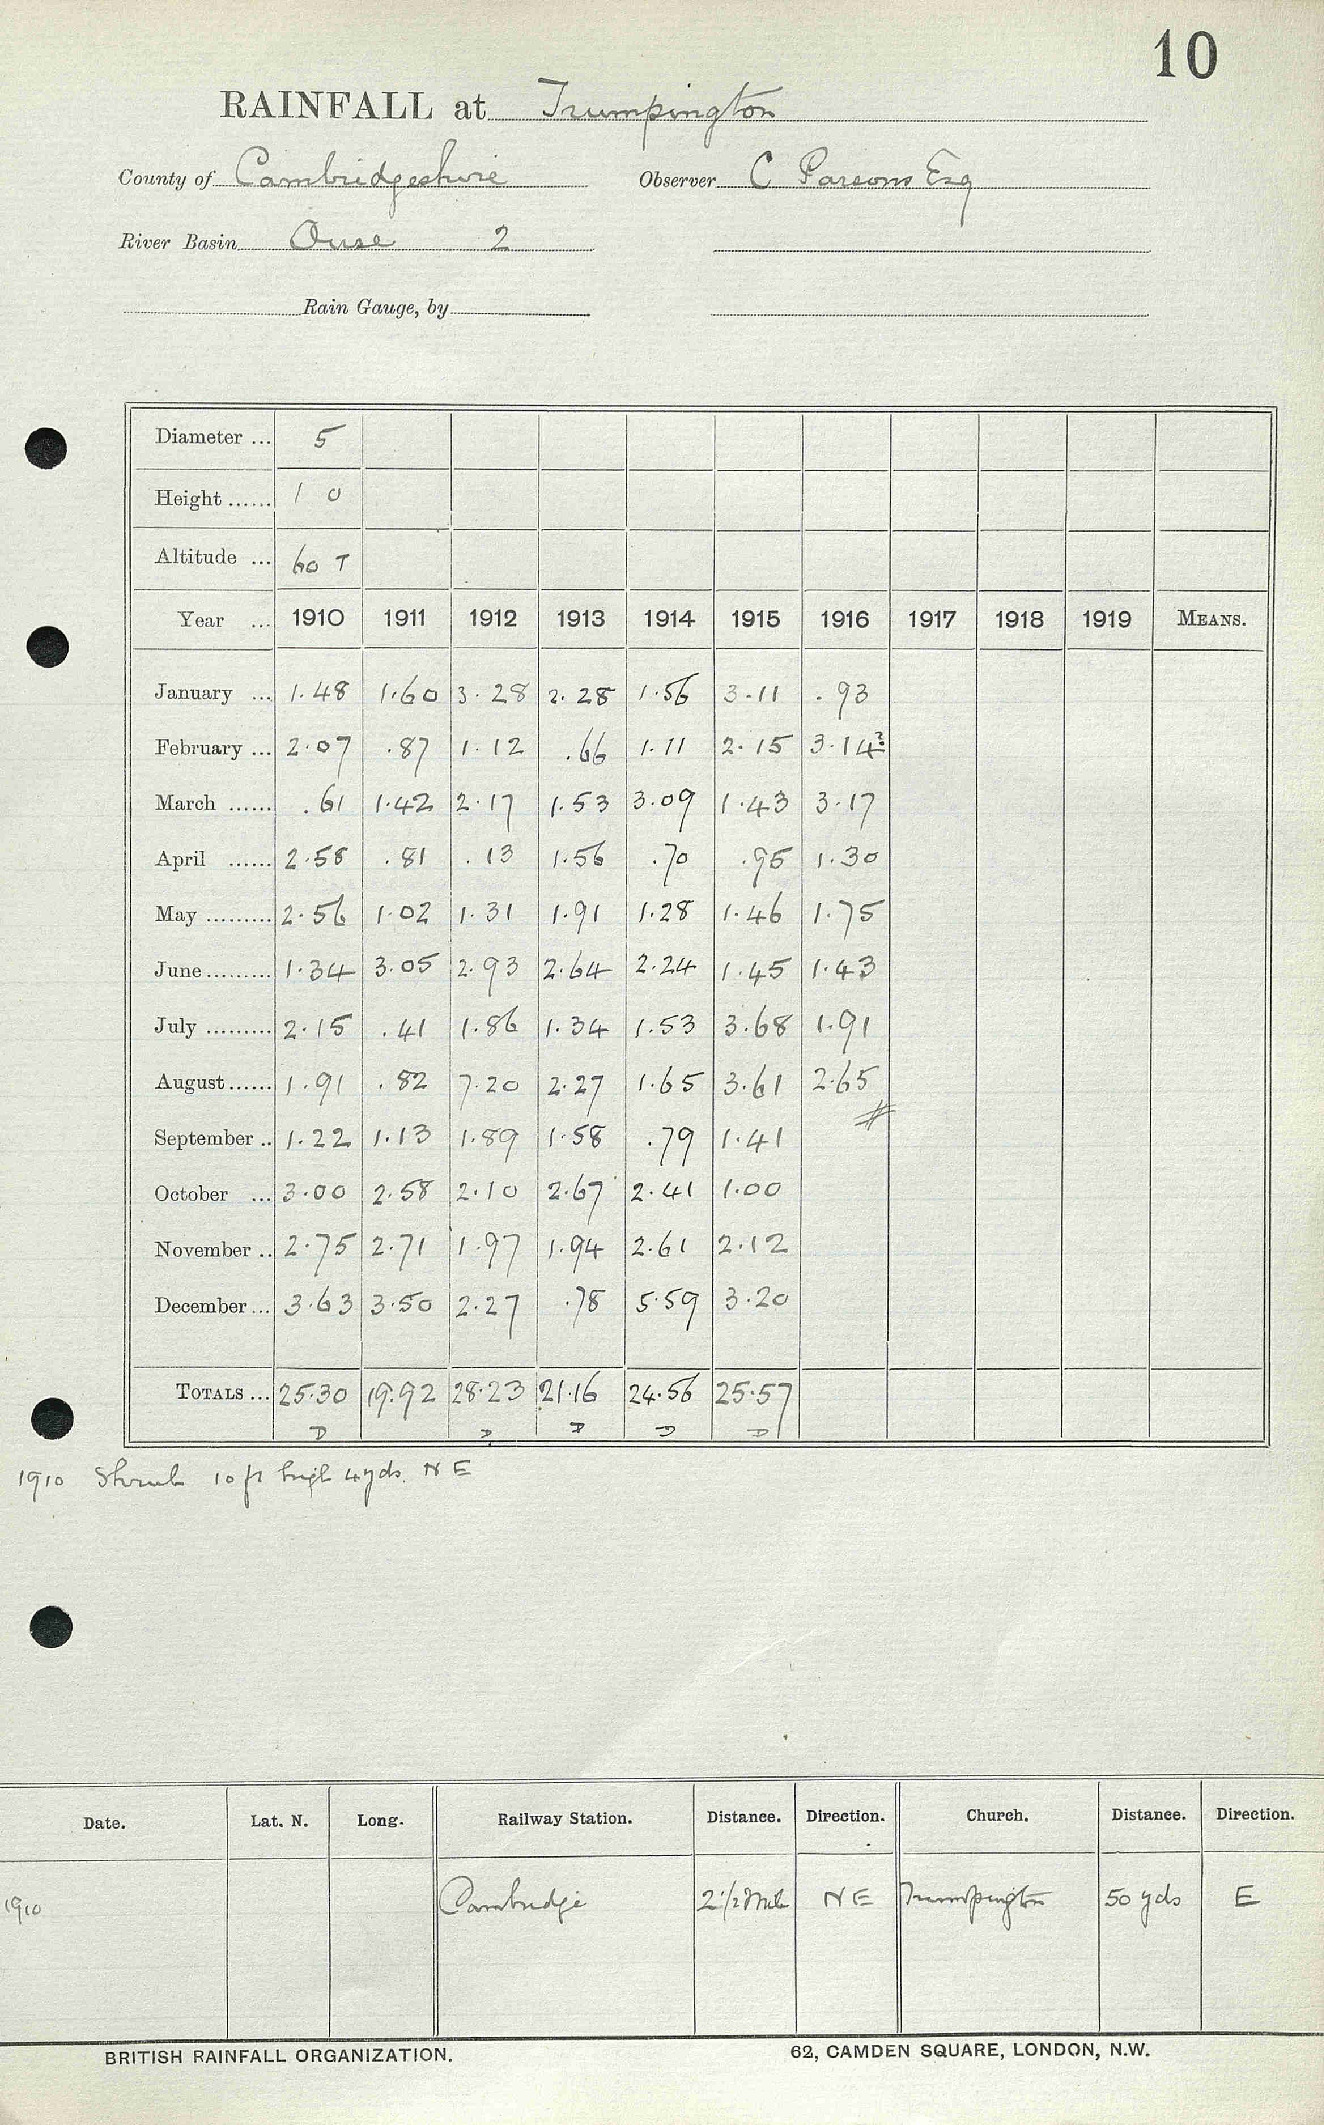 10
RAINFALL at Trumpington
County of Cambridgeshire Observer C Parsons Esq
River Basin Ouse 2
Rain Gauge, by
Diameter ... 5
Height ...... 1 0
Altitude ... 60 T
Year ... 1910 1911 1912 1913 1914 1915 1916 1917 1918 1919 MEANS.
January ... 1.48 1.60 3.28 2.28 1.56 3.11 .93
February ... 2.07 .87 1.12 .66 1.11 2.15 3.14?
March ...... .61 1.42 2.17 1.53 3.09 1.43 3.17
April ...... 2.58 .81 .13 1.56 .70 .95 1.30
May ......... 2.56 1.02 1.31 1.91 1.28 1.46 1.75
June ......... 1.34 3.05 2.93 2.64 2.24 1.45 1.43
July ......... 2.15 .41 1.86 1.34 1.53 3.68 1.91
August ...... 1.91 .82 7.20 2.27 1.65 3.61 2.65
September .. 1.22 1.13 1.89 1.58 .79 1.41
October ... 3.00 2.58 2.10 2.67 2.41 1.00
November .. 2.75 2.71 1.97 1.94 2.61 2.12
December ... 3.63 3.50 2.27 .78 5.59 3.20
TOTALS ... 25.30 19.92 28.23 21.16 24.56 25.57
D D D D D
1910 Shrub 10 ft high 4 yds. N E
Date. Lat. N. Long. Railway Station. Distance. Direction. Church. Distance. Direction.
1910 Cambridge 2 1/2 Mile N E Trumpington 50 yds E
BRITISH RAINFALL ORGANIZATION. 62, CAMDEN SQUARE, LONDON, N.W.